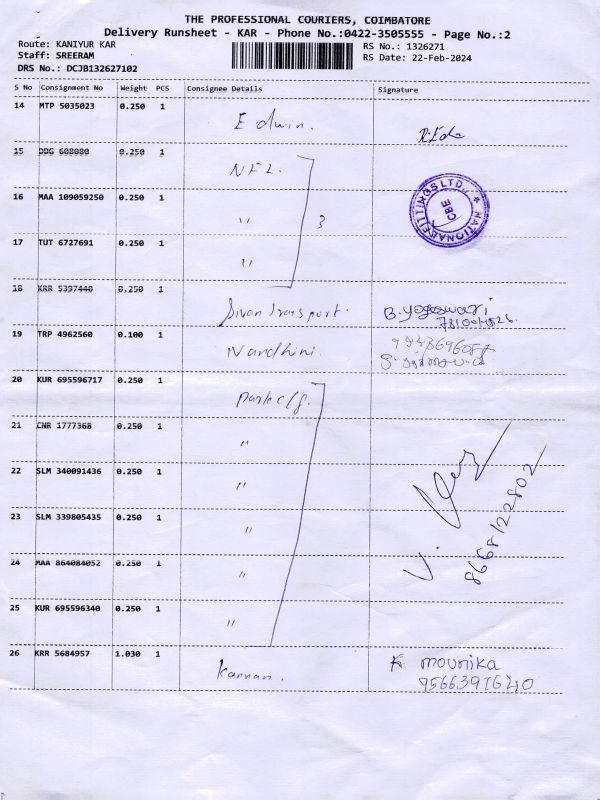 THE PROFESSIONAL COURIERS, COIMBATORE
Delivery Runsheet - KAR - Phone No.:0422-3505555 - Page No.:2
Route: KANIYUR KAR
RS No.: 1326271
Staff: SREERAM
RS Date: 22-Feb-2024
DRS No.: DCJB132627102
S No Consignment No Weight PCS Consignee Details Signature
14 MTP 5035023 0.250 1 Edwin.
15 DDG 608080 0.250 1 NFL.
16 MAA 109059250 0.250 1 " 3
NATIONAL FITTINGS LTD. CBE
17 TUT 6727691 0.250 1 "
18 KRR 5397440 0.250 1 Sivan transport. B. yogeswari
19 TRP 4962560 0.100 1 Nandhini.
20 KUR 695596717 0.250 1
21 CNR 1777368 0.250 1 "
22 SLM 340091436 0.250 1 "
23 SLM 339805435 0.250 1 "
8668122802
24 MAA 864084052 0.250 1 "
25 KUR 695596340 0.250 1 "
26 KRR 5684957 1.030 1 Kannan. K. mounika
9566391640